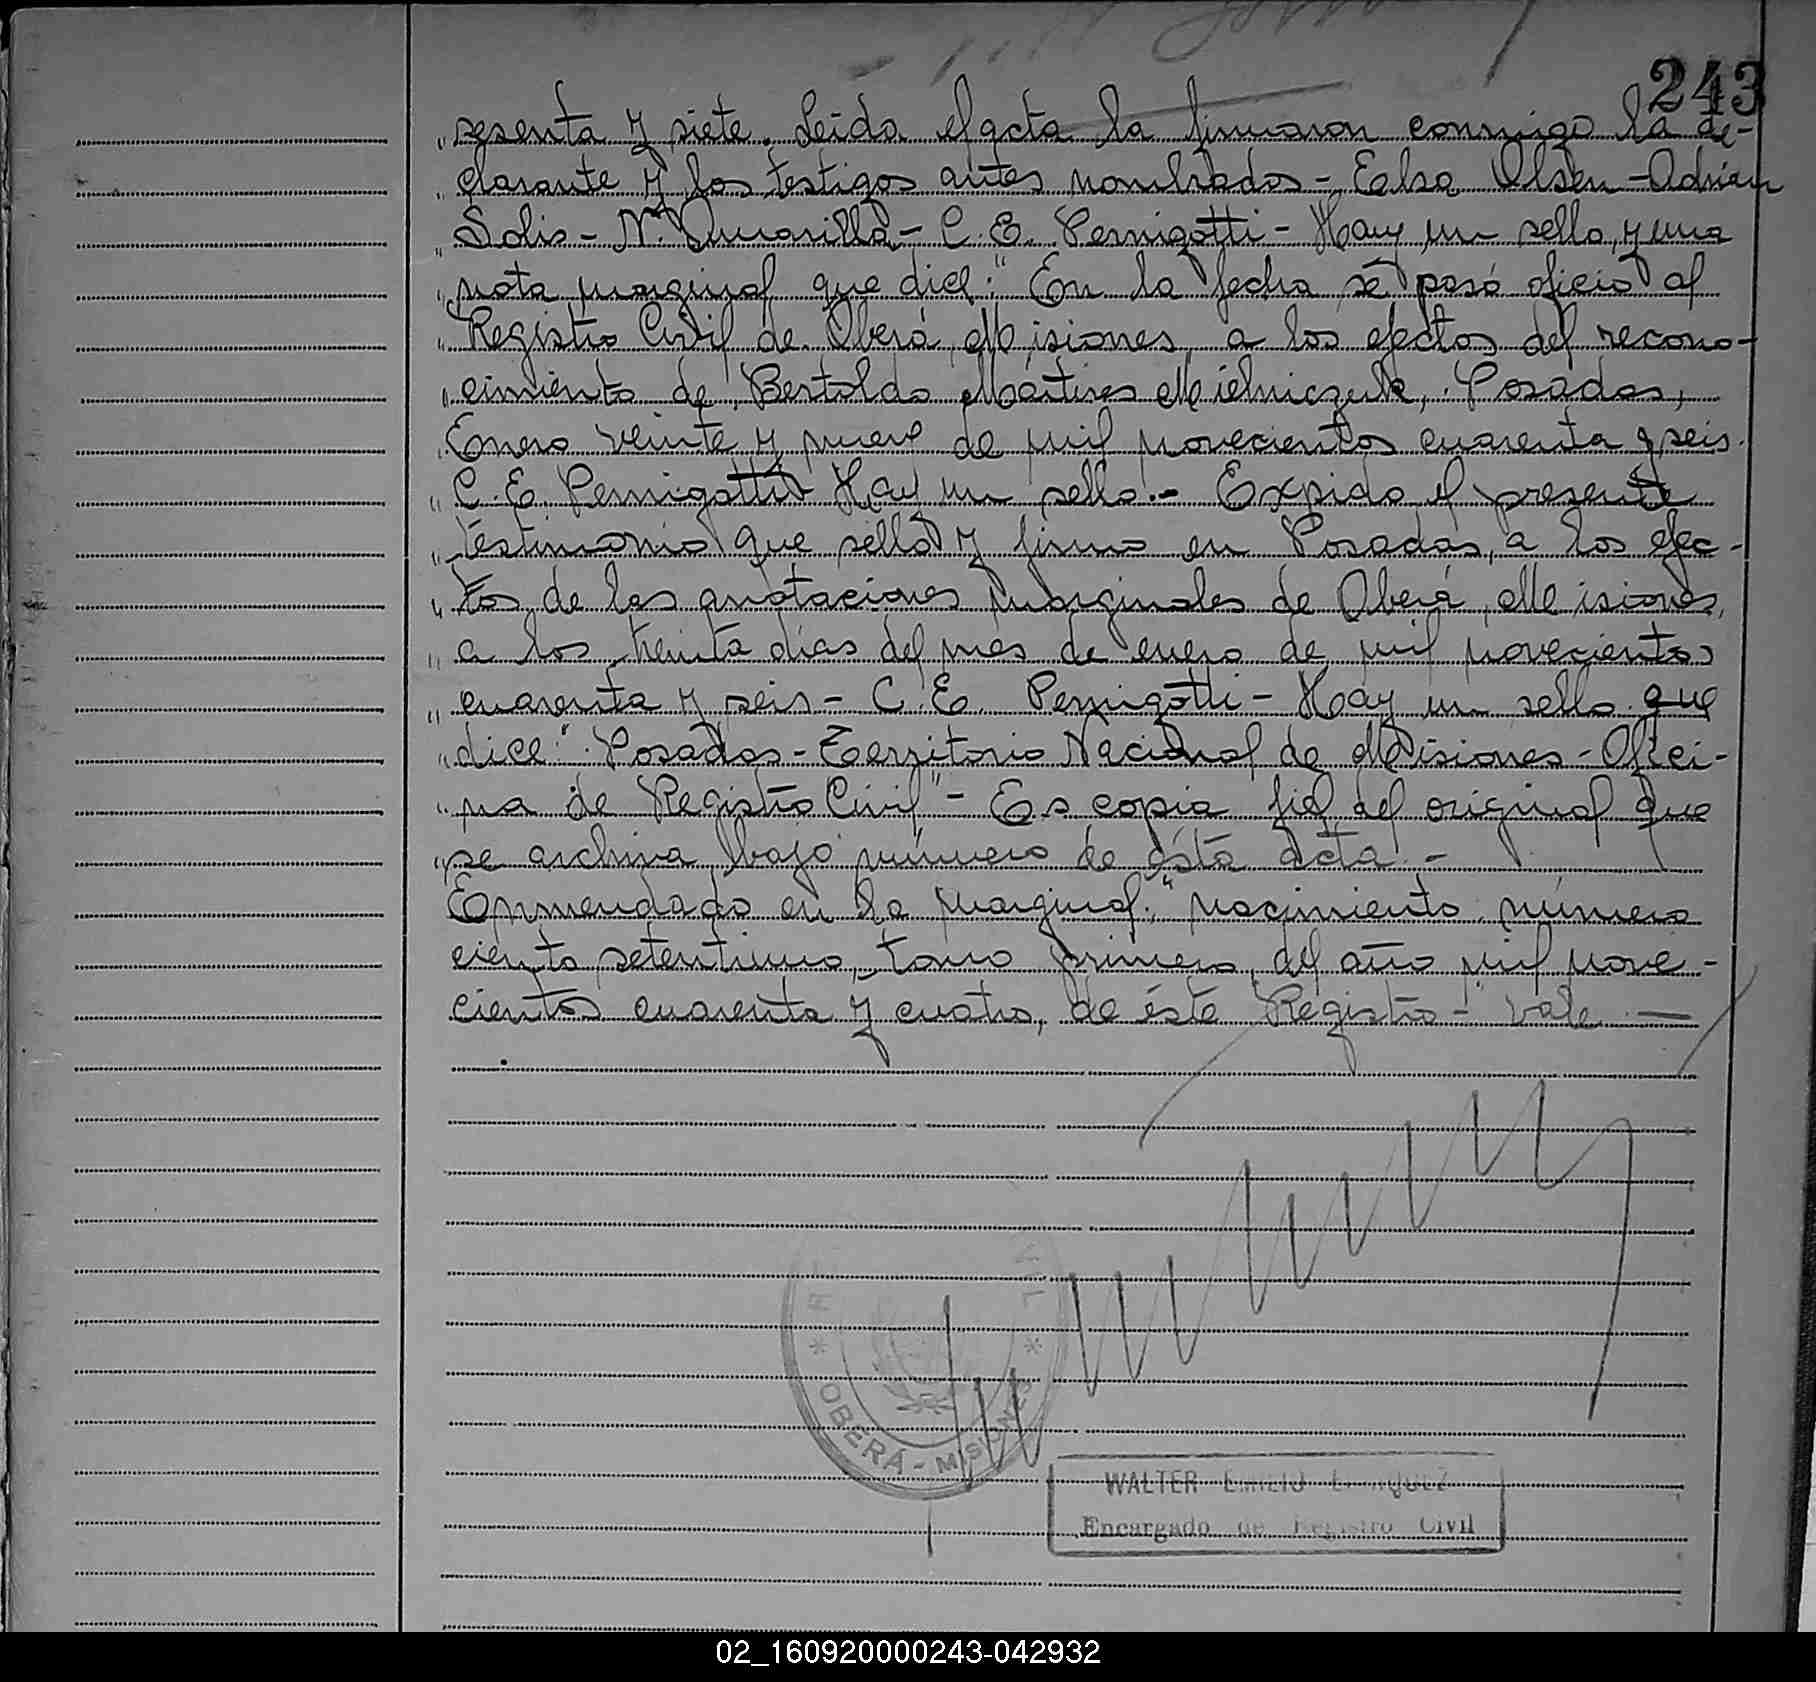 243
„ sesenta y siete. Leída el acta la firmaron conmigo la de-
„ clarante y los testigos antes nombrados - Elsa Olsen - Adrian
„ Solis - N. Amarilla - C. E. Pernigotti - Hay un sello, y una
„ nota marginal que dice: "En la fecha se pasó oficio al
„ Registro Civil de Oberá, Misiones, a los efectos del recono-
„ cimiento de Bertoldo Mártires Mielniczuk, Posadas,
„ Enero veinte y nueve de mil novecientos cuarenta y seis.
„ C. E. Pernigotti Hay un sello.- Expido el presente
„ testimonio que sello y firmo en Posadas, a los efec-
„ tos de las anotaciones marginales de Oberá, Misiones,
„ a los treinta días del mes de enero de mil novecientos
„ cuarenta y seis - C. E. Pernigotti - Hay un sello que
„ dice: "Posadas - Territorio Nacional de Misiones - Ofici-
„ na de Registro Civil" - Es copia fiel del original que
„ se archiva bajo número de ésta acta.-
Enmendado en la marginal: "nacimiento número
ciento setentiuno, tomo primero, del año mil nove-
cientos cuarenta y cuatro, de éste Registro - Vale —
OBERÁ - MISIONES
WALTER EMILIO
Encargado de Registro Civil
02_160920000243-042932